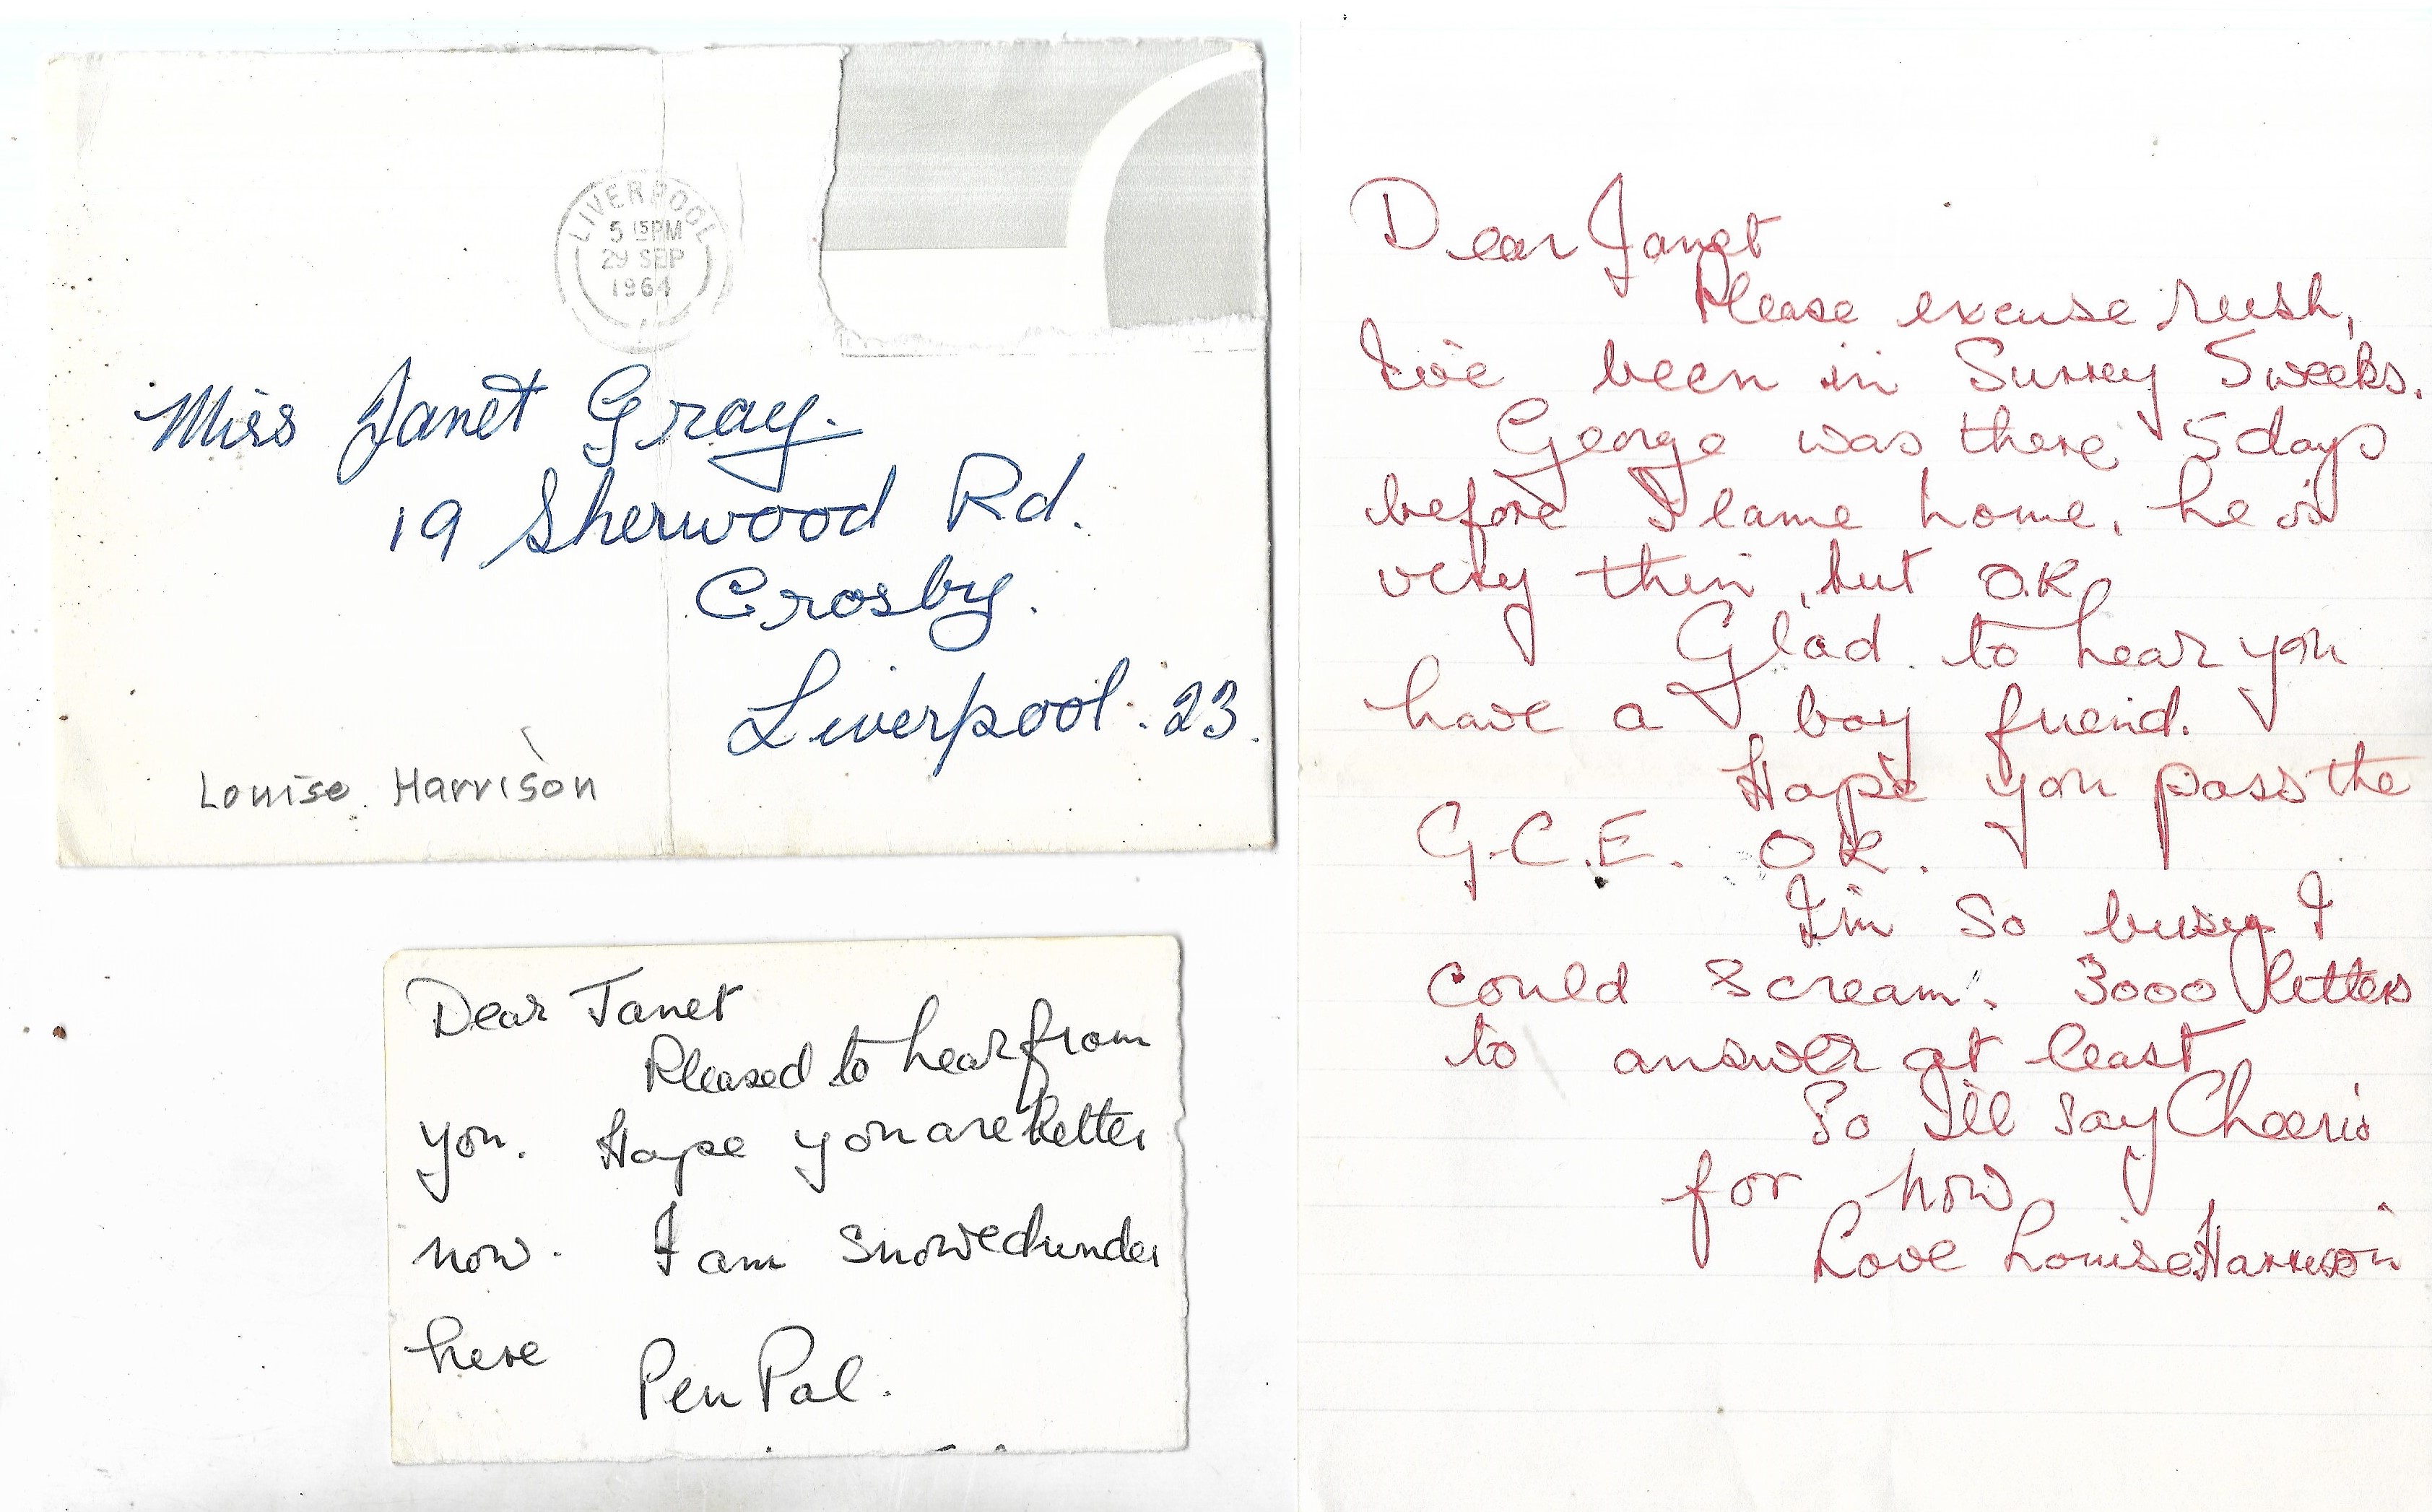 LIVERPOOL
5 15 PM
29 SEP
1964
Miss Janet Gray.
19 Sherwood Rd.
Crosby.
Liverpool. 23.
Louise Harrison
Dear Janet
Pleased to hear from
you. Hope you are better
now. I am snowed under
here
Pen Pal.
Dear Janet
Please excuse rush,
I've been in Surrey 5 weeks.
George was there 5 days
before I came home, he is
very thin, but O.K.
Glad to hear you
have a boy friend.
Hope you pass the
G.C.E. OK.
I'm so busy I
could scream. 3000 letters
to answer at least
So I'll say Cheerio
for now
Love Louise Harrison